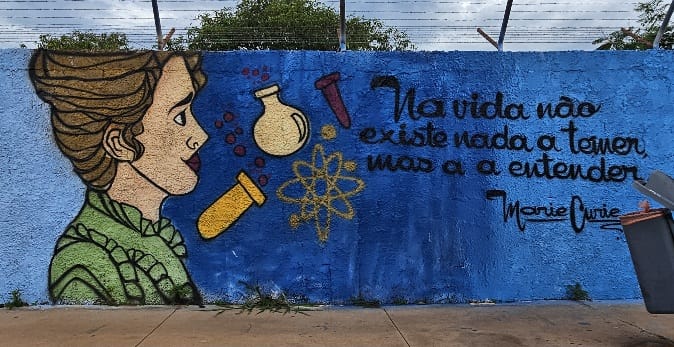 Na vida não
existe nada a temer,
mas a a entender.
Marie Curie